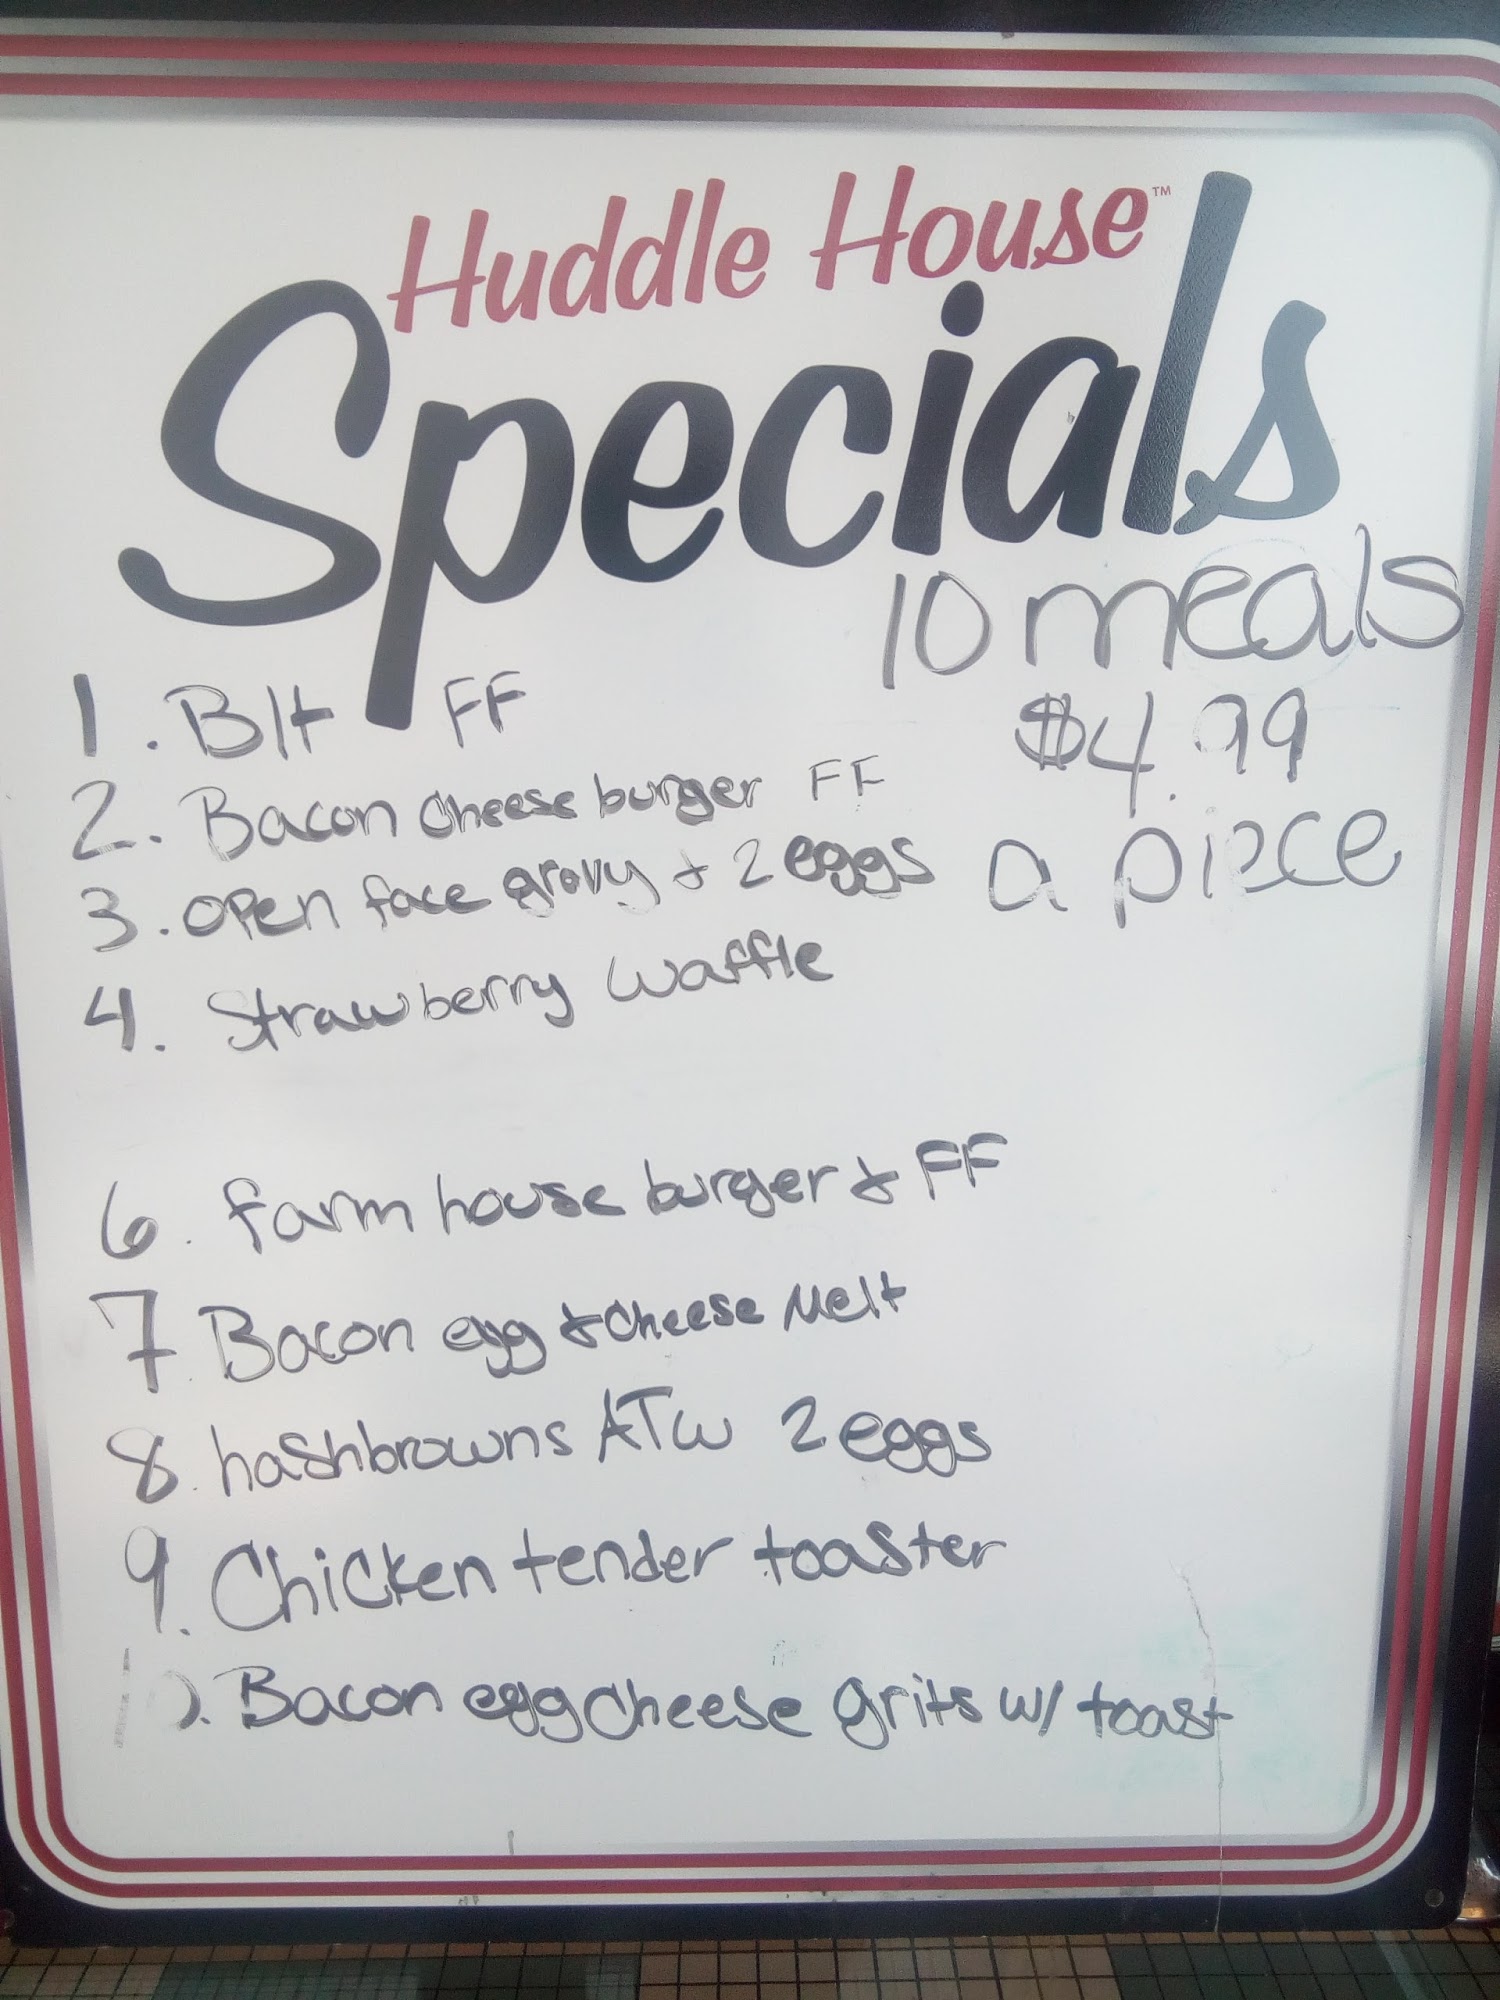 Huddle House™
Specials
10 meals
$4.99
a piece
1. Blt FF
2. Bacon cheese burger FF
3. open face gravy + 2 eggs
4. Strawberry waffle
6. farm house burger + FF
7. Bacon egg + cheese Melt
8. hashbrowns ATW 2 eggs
9. Chicken tender toaster
10. Bacon egg cheese grits w/ toast